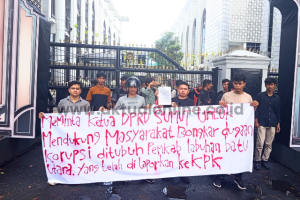 Meminta Ketua DPRD SUMUT Untuk
Mendukung Masyarakat Bongkar dugaan
Korupsi ditubuh Pemkab labuhan batu
Utara. Yang telah di laporkan ke KPK